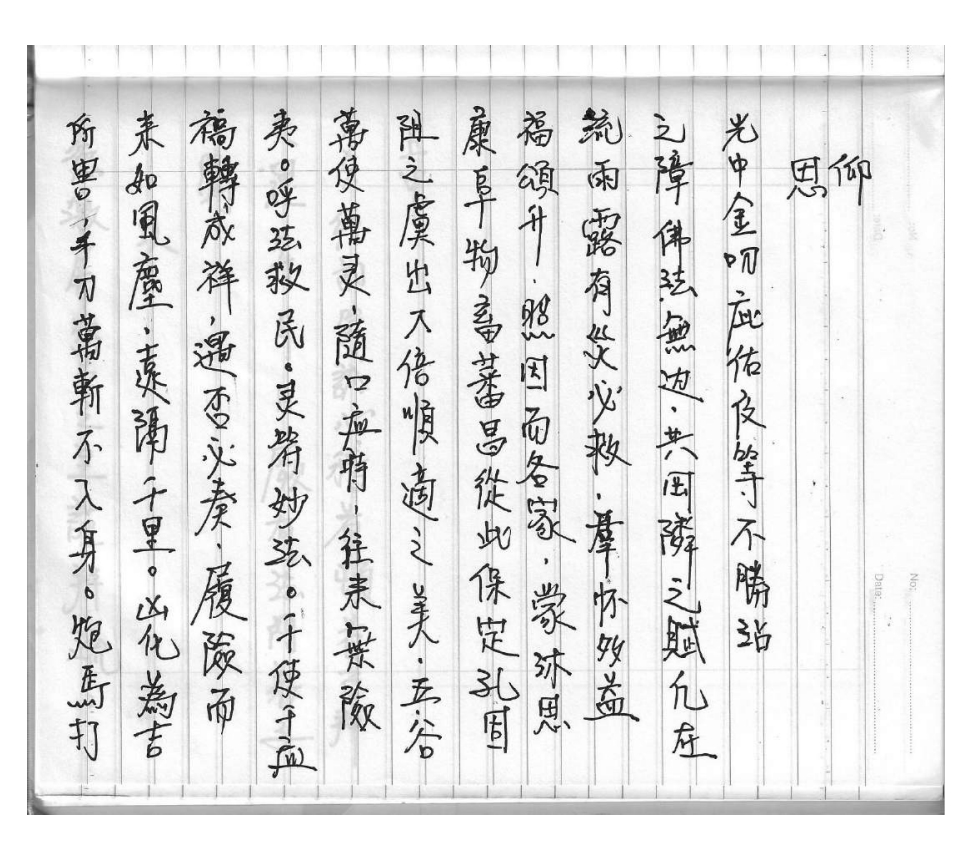 仰
恩
光中金叨庇佑良等不勝站
之障佛法無边共田隣之賦凢在
統雨露有災必救羣怀效益
福頌升照因而各家蒙沐恩
康阜物畜蕃昌從此保定孔固
阻之虞出入倍順適之美五谷
萬使萬灵隨口应時往来無險
夷。呼法救民。灵符妙法。千使千应
禍轉成祥遇否必泰履險而
来如風塵遠隔千里。凶化為吉
所害手刀萬斬不入身。炮馬打
No:
Date: